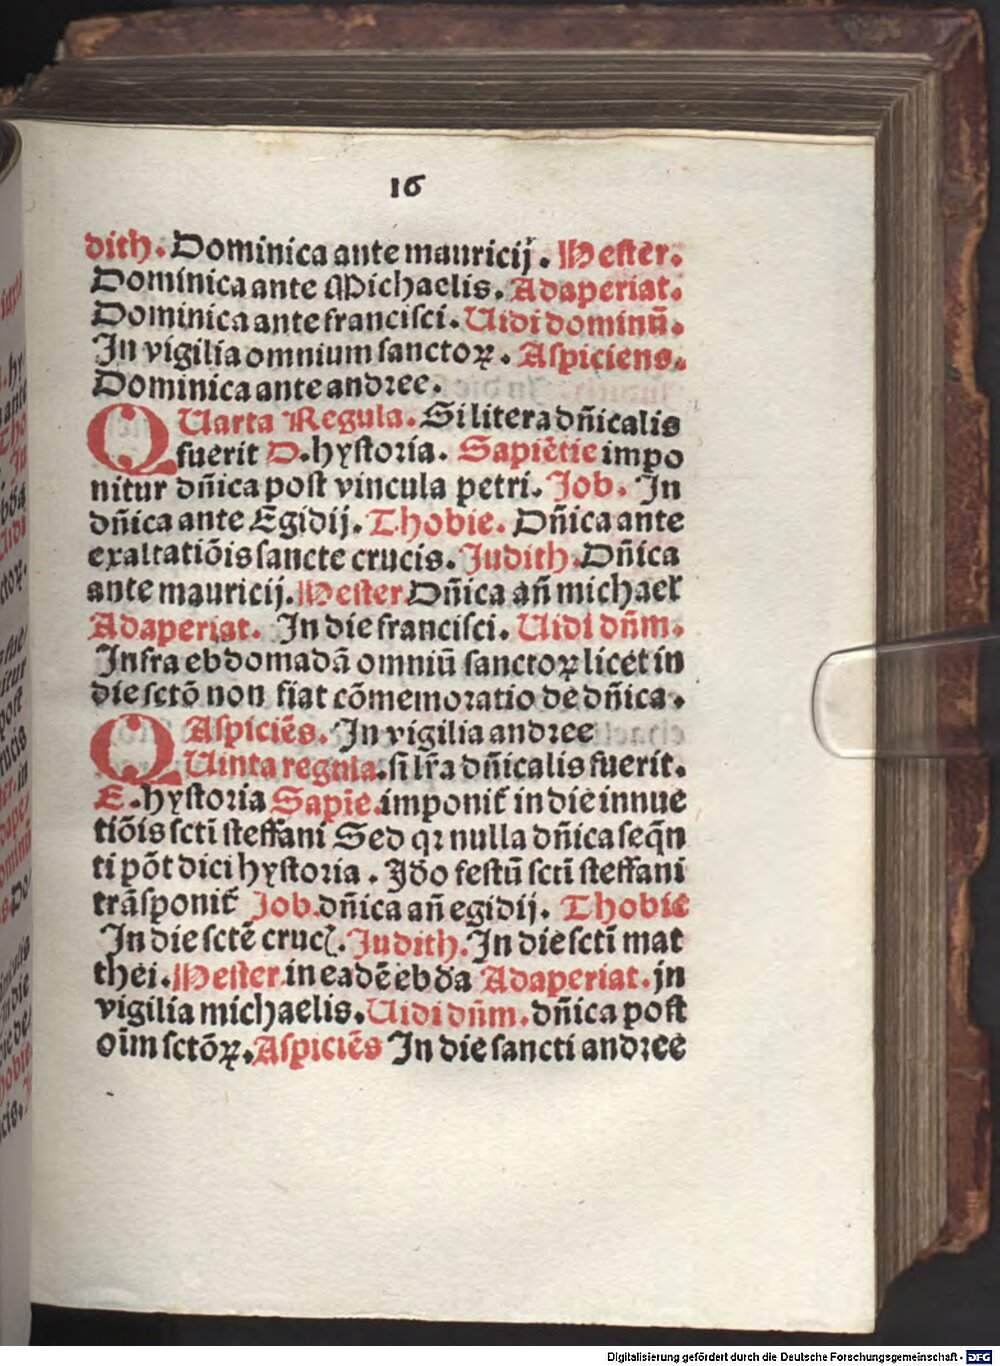 16
dith. Dominica ante mauricij. Hester.
Dominica ante Michaelis. Adaperiat.
Dominica ante francisci. Uidi dominū.
In vigilia omnium sanctoꝝ. Aspiciens.
Dominica ante andree.
QUarta Regula. Si litera dñicalis
fuerit D. hystoria. Sapiētie impo
nitur dñica post vincula petri. Job. In
dñica ante Egidij. Thobie. Dñica ante
exaltatiōis sancte crucis. Judith. Dñica
ante mauricij. Hester. Dñica añ michael
Adaperiat. In die francisci. Uidi dñm.
Infra ebdomadā omniū sanctoꝝ licet in
die sctō non fiat cōmemoratio de dñica.
Aspiciēs. In vigilia andree
QUinta regula. si lr̄a dñicalis fuerit.
E. hystoria Sapiē. imponit᷑ in die innue
tiōis scti steffani Sed qꝛ nulla dñica seqn̄
ti pōt dici hystoria. Jdo festū scti steffani
trāsponit᷑ Job. dñica añ egidij. Thobie
In die sctē crucꝭ. Judith. In die scti mat
thei. Hester. in eadē ebda Adaperiat. jn
vigilia michaelis. Uidi dñm. dñica post
oim sctōꝝ. Aspiciēs In die sancti andree
Digitalisierung gefördert durch die Deutsche Forschungsgemeinschaft - DFG